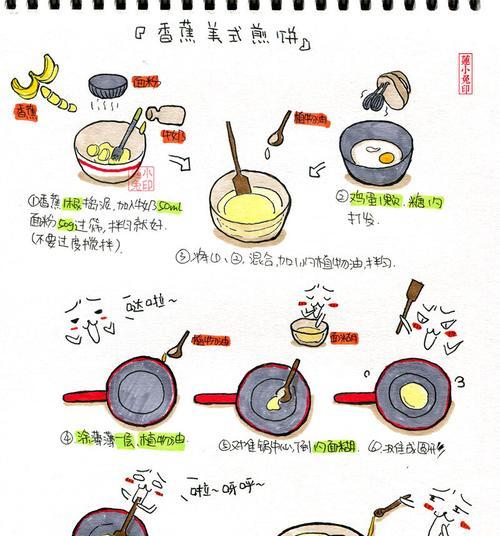 『香蕉美式煎饼』
蓮小兔印
香蕉
面粉
牛奶
小兔印
植物油
①香蕉1根捣泥,加牛奶50ml
面粉50g过筛,拌匀就好.
(不要过度搅拌)
②鸡蛋1颗.糖1勺
打发.
③将①、②.混合,加1勺植物油,拌匀.
哒啦~
植物油
面糊
④涂薄薄一层,植物油.
⑤对准锅中心,倒1勺面糊.
啦~呀呼~